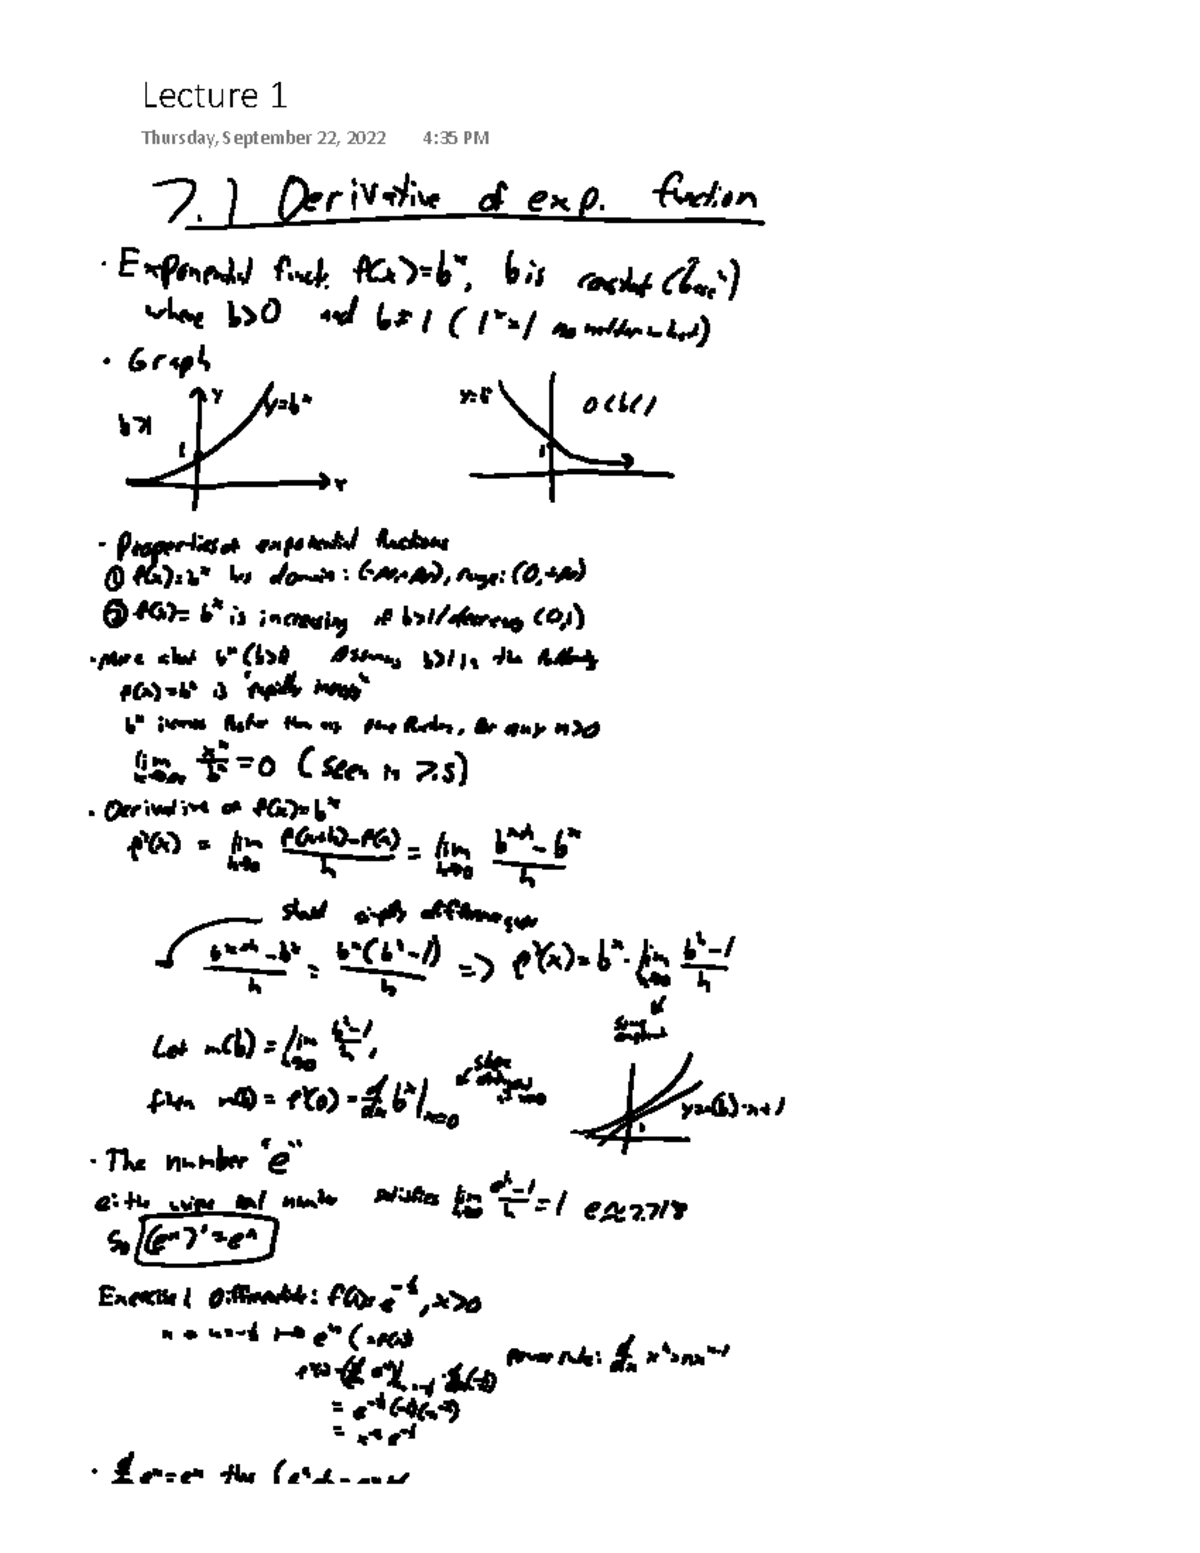 Lecture 1
Thursday, September 22, 2022 4:35 PM
7.1 Derivative of exp. function
· Exponential funct. f(x)=b^x, b is constant ("base")
where b>0 and b≠1 (1^x=1 no matter what)
· Graph
b>1 y y=b^x 1 x
y=b^x 0<b<1 1
· Properties of exponential functions
① f(x)=b^x has domain: (-∞,+∞), range: (0,+∞)
② f(x)=b^x is increasing if b>1/decreasing (0,1)
· More about b^x (b>0 Assume b>1 in the following
f(x)=b^x is "rapidly increasing"
b^x increases faster than any power function, for any n>0
lim x→+∞ x^n/b^x = 0 (seen in 7.5)
· Derivative of f(x)=b^x
f'(x) = lim h→0 (f(x+h)-f(x))/h = lim h→0 (b^(x+h) - b^x)/h
simplify difference quo
(b^(x+h) - b^x)/h = b^x(b^h-1)/h => f'(x)=b^x · lim h→0 (b^h-1)/h
some constant
Let m(b) = lim h→0 (b^h-1)/h,
then m(b) = f'(0) = d/dx b^x|x=0
slope
x=0
y=m(b)·x+1
1
· The number "e"
e: the unique real number satisfies lim h→0 (e^h-1)/h = 1 e≈2.718
So (e^x)'=e^x
Exercise 1 Differentiate: f(x)=e^(-1/x), x>0
power rule: d/dx x^n=nx^(n-1)
= x^-2 e^(-1/x)
· d/dx e^x=e^x the